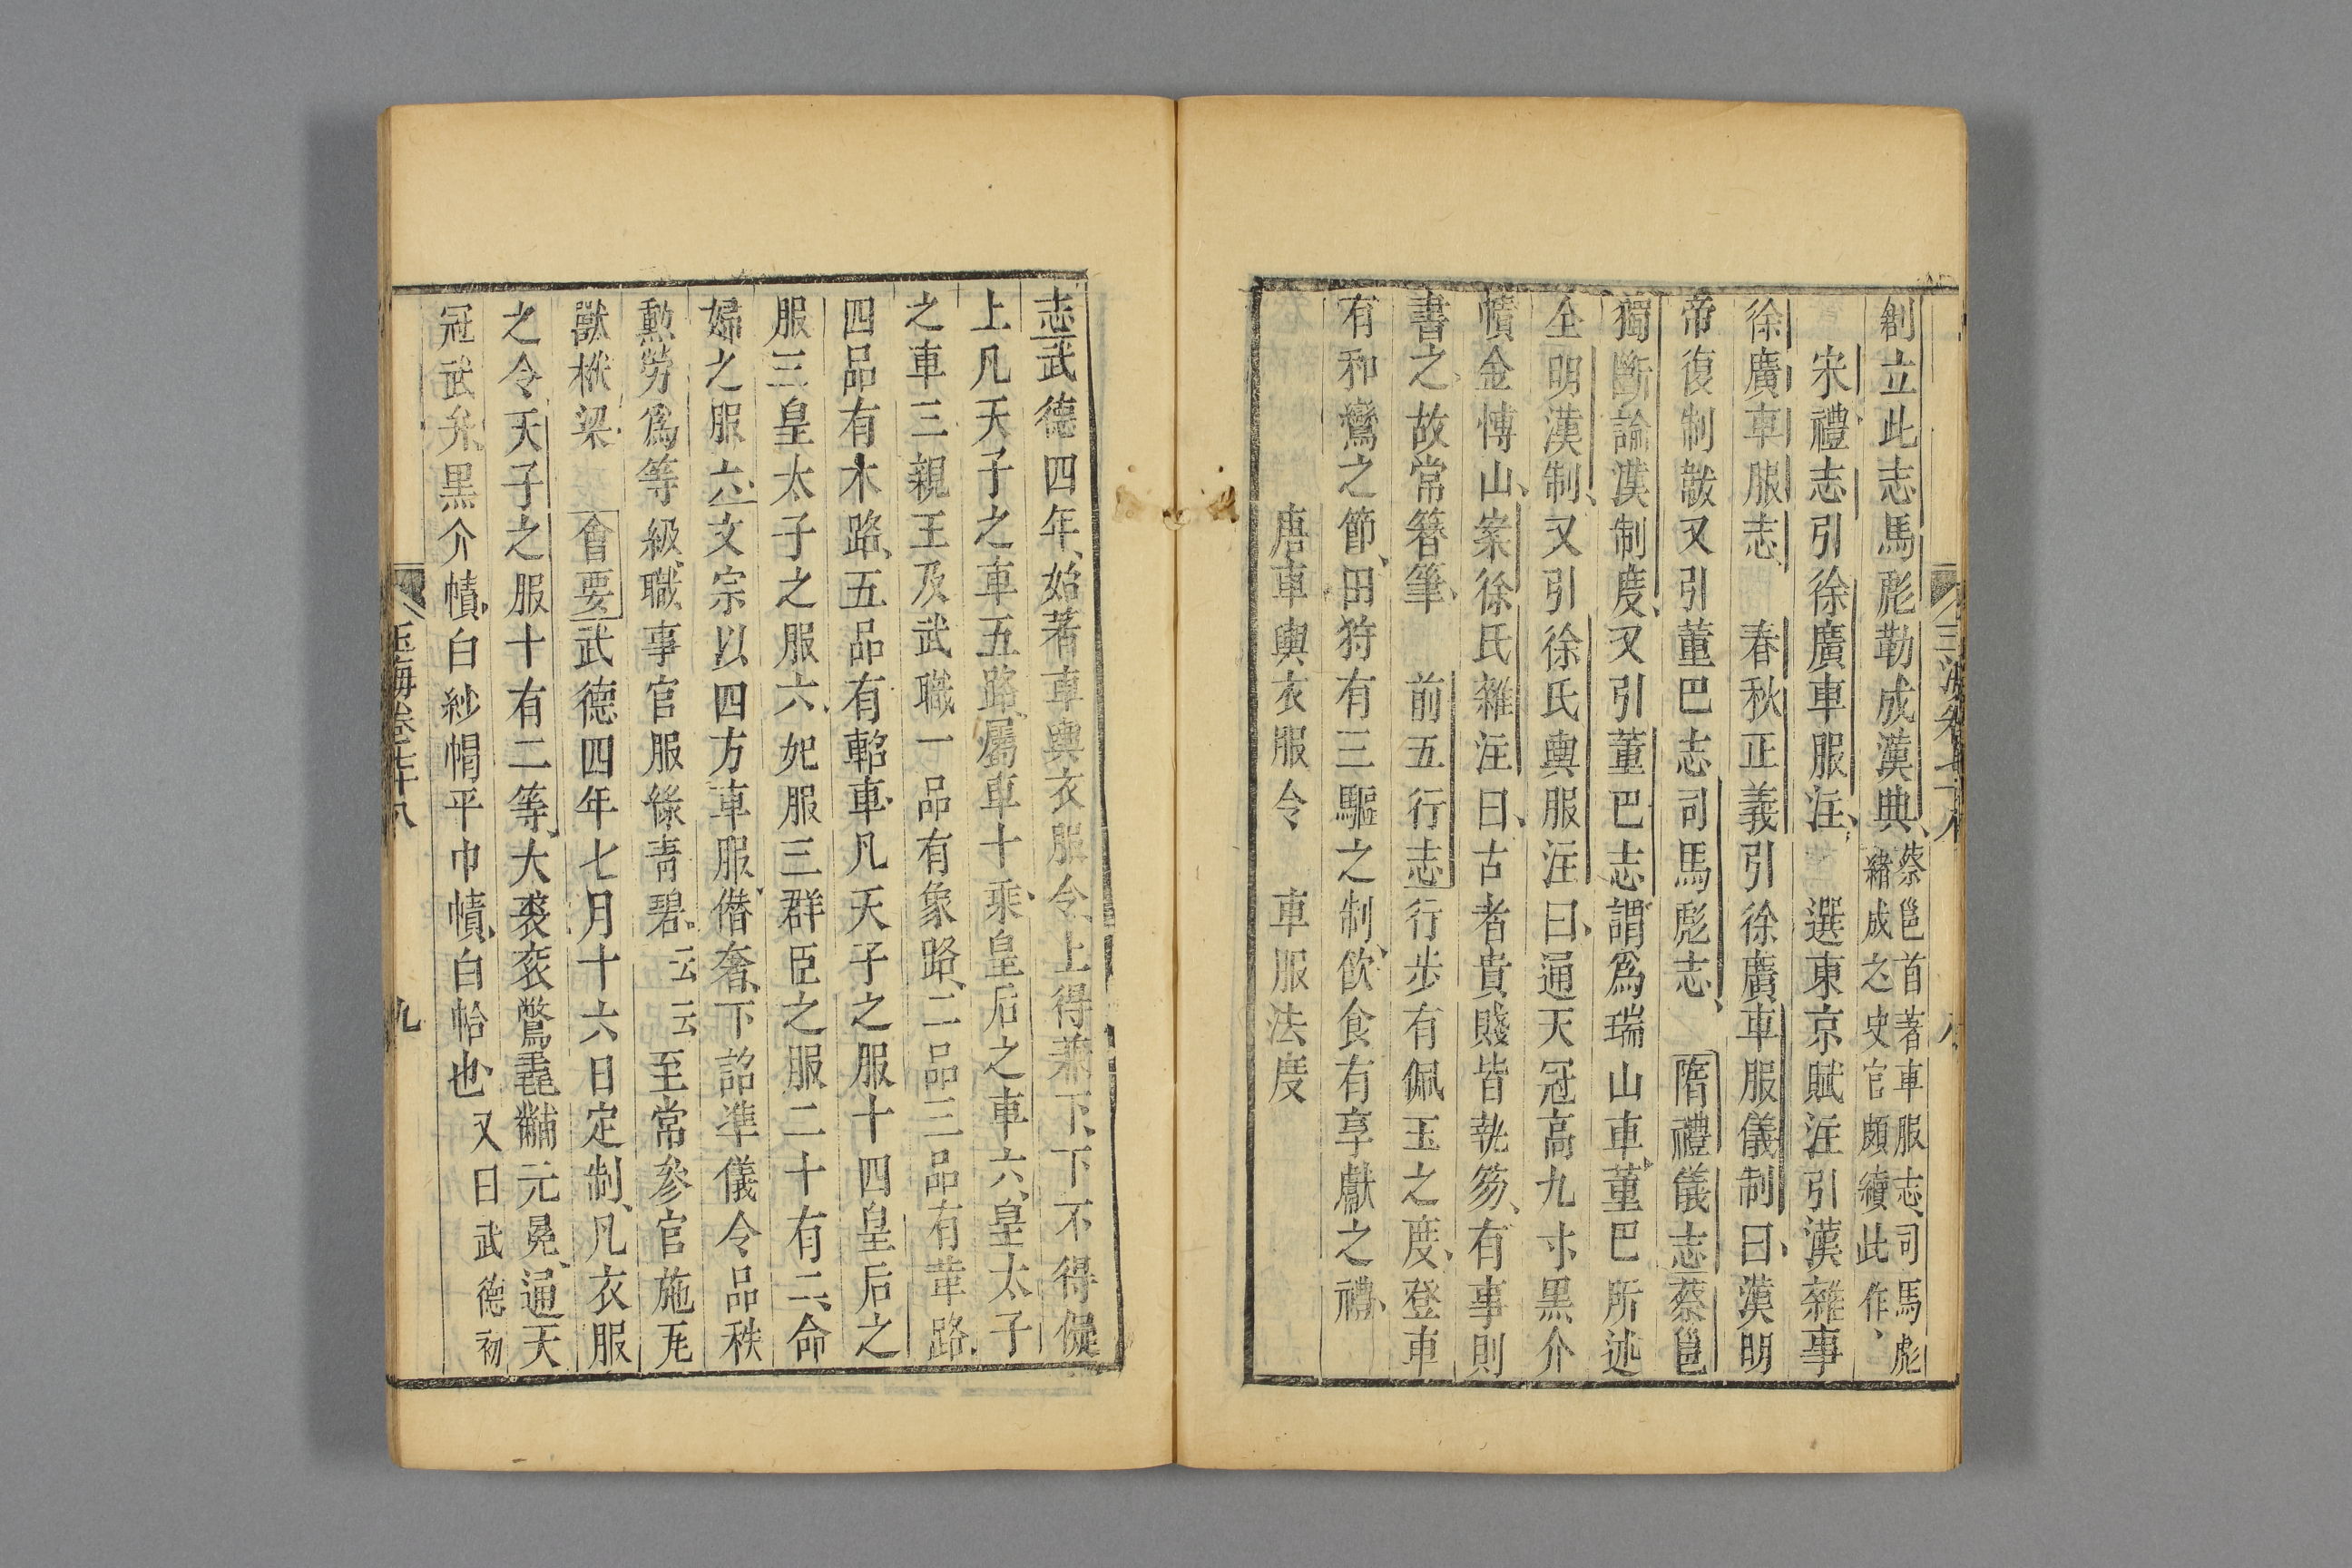 創立此志馬彪勒成漢典蔡邕首著車服志司馬彪緒成之史官頗續此作
宋禮志引徐廣車服注　選東京賦注引漢雜事
徐廣車服志　春秋正義引徐廣車服儀制曰漢明
帝復制㪍又引董巴志司馬彪志　隋禮儀志蔡邕
獨斷論漢制度又引董巴志謂爲瑞山車董巴所述
全明漢制又引徐氏輿服注曰通天冠高九寸黑介
幘金博山案徐氏雜注曰古者貴賤皆執笏有事則
書之故常簪筆　前五行志行步有佩玉之度登車
有和鸞之節田狩有三驅之制飲食有享獻之禮
唐車輿衣服令　車服法度
志武德四年始著車輿衣服令上得兼下下不得儗
上凡天子之車五路屬車十乘皇后之車六皇太子
之車三親王及武職一品有象路二品三品有革路
四品有木路五品有軺車凡天子之服十四皇后之
服三皇太子之服六妃服三群臣之服二十有二命
婦之服六文宗以四方車服僭奢下詔準儀令品秩
勲勞爲等級職事官服綠青碧云云至常參官施瓦
獸栿梁　會要武德四年七月十六日定制凡衣服
之令天子之服十有二等大裘袞鷩毳黼元冕通天
冠武弁黑介幘白紗帽平巾幘白帢也又曰武德初
玉海卷七十八
九